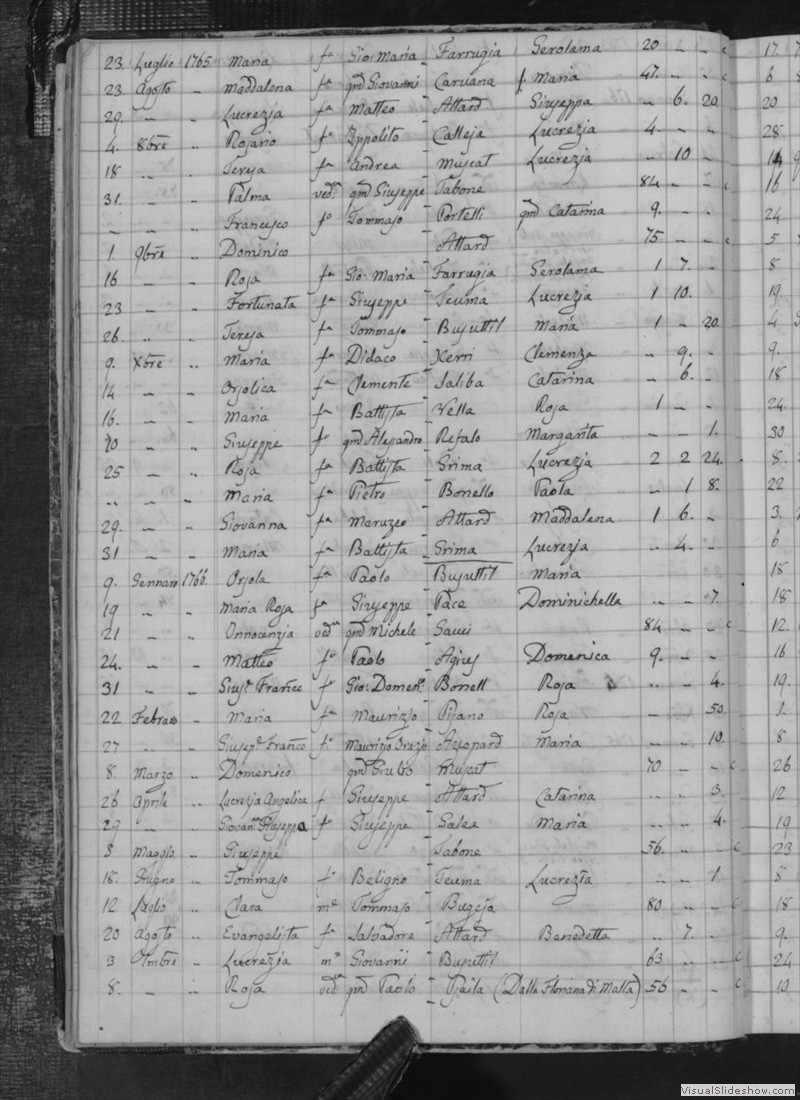 23. Luglio 1765. Maria fa Gio: Maria Farrugia Gerolama 20 - - c 17
23 Agosto .. Maddalena fa qm Giovanni Caruana f Maria 47. - - c 6
29. - .. Lucrezia fa Matteo Attard Giuseppa - 6. 20. 20
4. 8bre .. Rosario fo Ippolito Calleja Lucrezia 4. - - 28
18 .. .. Teresa fa Andrea Muscat Lucrezia - 10 - 14
31. .. .. Palma veda qm Giuseppe Tabone 84 - - c 16
- - .. Francesco fo Tommaso Portelli qm Catarina 9. - . 24
1. 9bre .. Dominico Attard 75 - - c 5
16 - .. Rosa fa Gio: Maria Farrugia Gerolama 1 7. - 8
23 - .. Fortunata fa Giuseppe Teuma Lucrezia 1 10. - 19.
26. .. .. Teresa fa Tommaso Busuttil Maria 1 - 20. 4
9. Xbre .. Maria fa Didaco Xerri Clemenza - 9. - 9.
14 - .. Orsolica fa Clemente Saliba Catarina - 6. - 18
16. - .. Maria fa Battista Vella Rosa 1 - - 24.
20 - .. Giuseppe fo qm Alesandro Refalo Margarita - - 1. 30
25 - .. Rosa fa Battista Grima Lucrezia 2 2 24. 8.
.. - .. Maria fa Pietro Bonello Paola - 1 8. 22
29. - .. Giovanna fa Maruzzo Attard Maddalena 1 6. - 3.
31 - .. Maria fa Battista Grima Lucrezia .. 4. - 6
9. Gennaro 1766. Orsola fa Paolo Busuttil Maria 18
19 - .. Maria Rosa fa Giuseppe Pace Dominichella .. - 7. 18
21 - .. Innocenzia veda qm Michele Sauci 84 - - c 12
24. - - Matteo fo Paolo Agius Domenica 9. - - 16
31 - .. Gius.e Franco fo Gio: Domeno Bonett Rosa .. - 4. 19.
22 Febraro - Maria fa Maurizio Pisano Rosa - 50. 1.
27 - .. Giusepe Franco fo Maurizo Orazio Azzopard Maria - - 10. 8
8. Marzo .. Domenico Muscat 70 - - c 26
26 Aprile .. Lucrezia Angelica f Giuseppe Attard Catarina .. - 3. 12
29 - .. Giovana Giuseppa fa Giuseppe Galea Maria .. - 4. 19
8 Maggio .. Giuseppe Tabone 56. - - c 23
18. Giugno .. Tommaso fo Beligno Teuma Lucrezia .. - 1 8
12 Luglio .. Clara me Tommaso Bugeja 80 - - c 18
20 Agosto .. Evangelista fo Salvadore Attard Benedetta .. 7. - 9.
3 .. Lucrezia me Giovanni Busuttil 63 .. .. c 24
8. - .. Rosa veda qm Paolo Psaila (Dalla Floriana di Malta) 56 - - c 10
VisualSlideshow.com